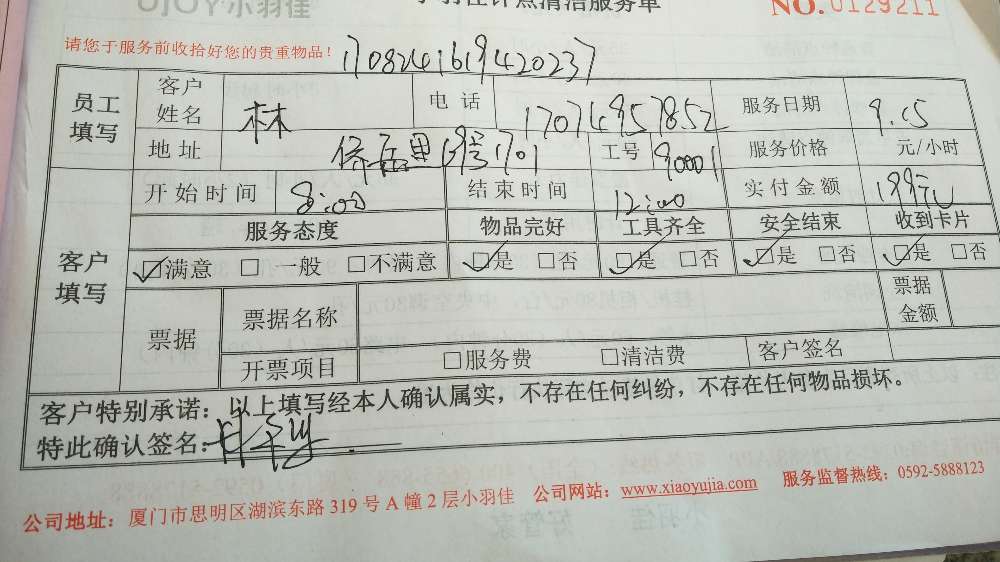 UJOY小羽佳
小羽佳钟点清洁服务单
NO.0129211
请您于服务前收拾好您的贵重物品!
1708241619420237
员工填写 客户姓名 林 电话 17074957852 服务日期 9.15
地址 里 1701 工号 90001 服务价格 元/小时
客户填写 开始时间 8:00 结束时间 12:00 实付金额 199元
服务态度 物品完好 工具齐全 安全结束 收到卡片
☑满意 □一般 □不满意 ☑是 □否 ☑是 □否 ☑是 □否 ☑是 □否
票据 票据名称 票据金额
开票项目 □服务费 □清洁费 客户签名
客户特别承诺:以上填写经本人确认属实,不存在任何纠纷,不存在任何物品损坏。
特此确认签名:
公司地址:厦门市思明区湖滨东路 319 号 A 幢 2 层小羽佳 公司网站:www.xiaoyujia.com 服务监督热线:0592-5888123